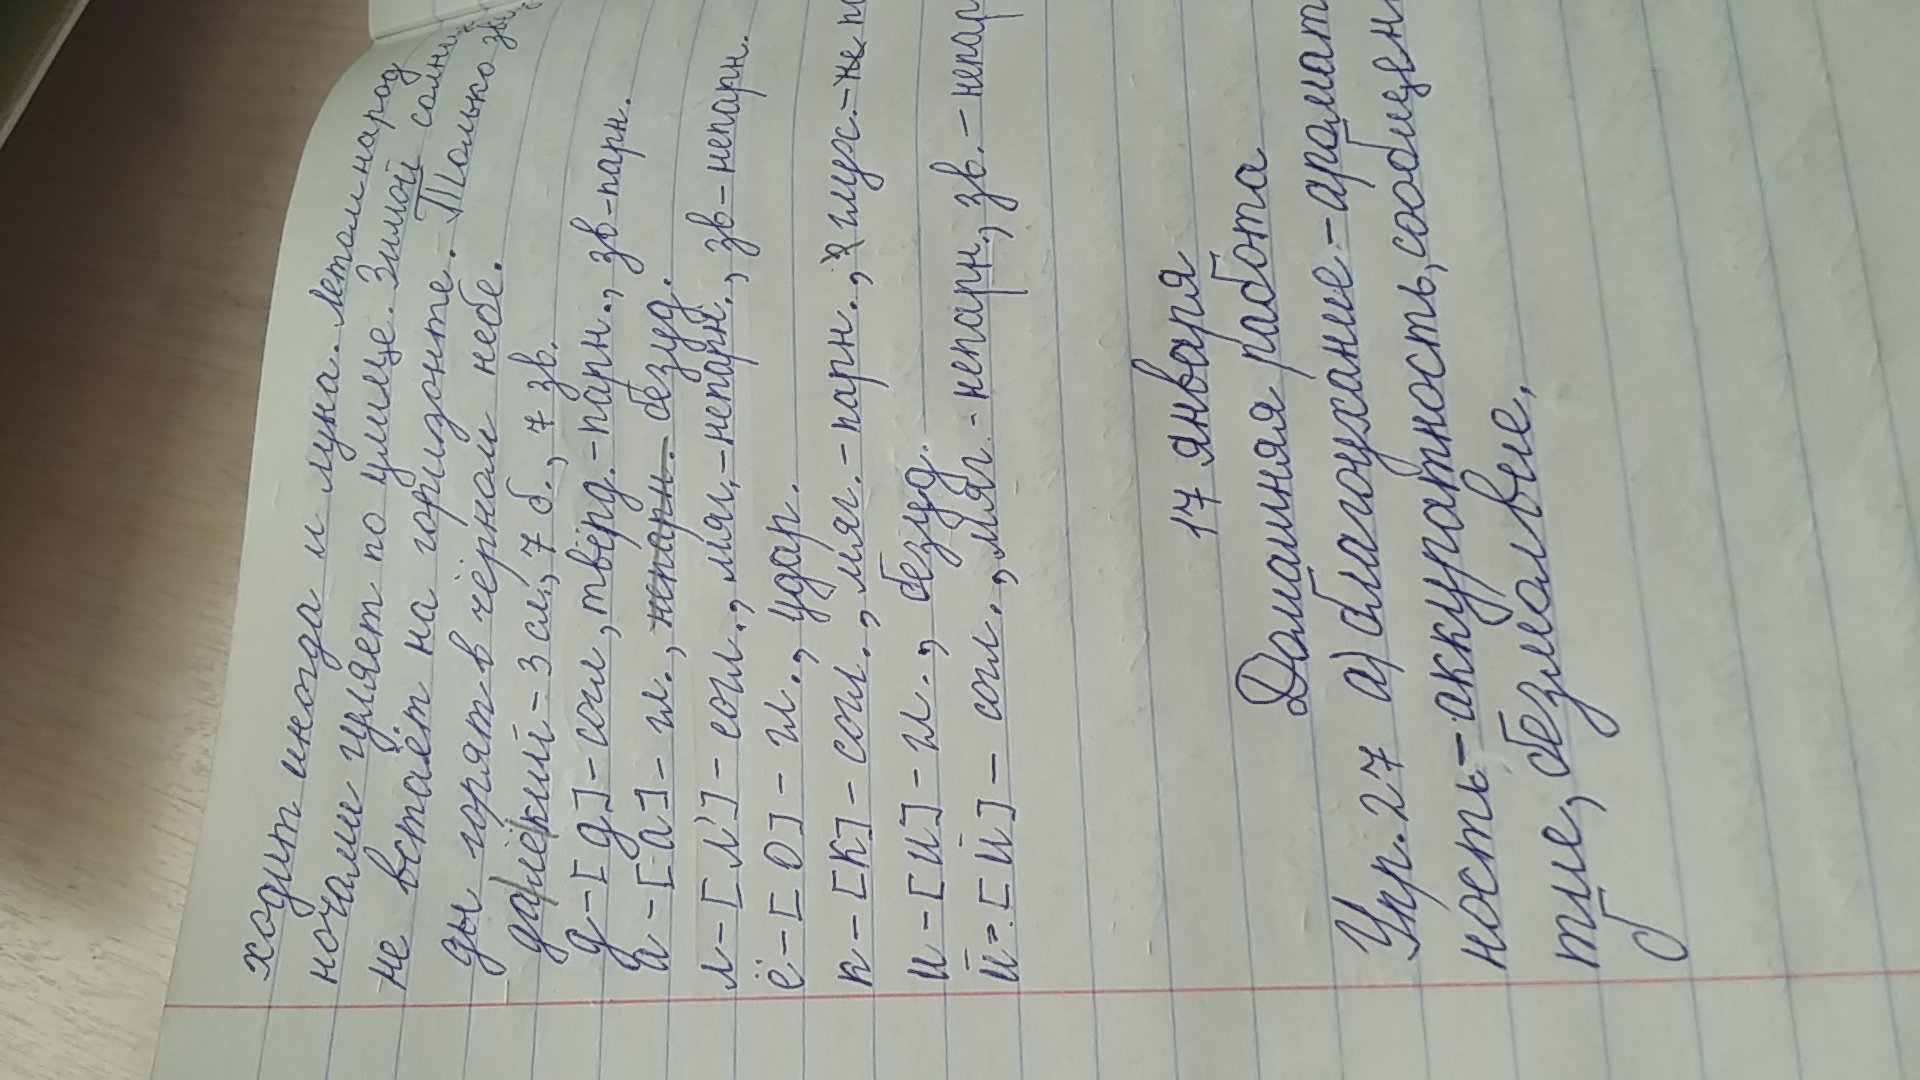 ходит иногда и луна. Летом народ
ночами гуляет по улице. Зимой солнце
не встаёт на горизонте. Только звё
зды горят в чёрном небе.
далёкий - 3 сл., 7 б., 7 зв.
д - [д] - согл., твёрд. - парн., зв - парн.
а - [а] - гл., непарн. безуд.
л - [л'] - согл., мяг. - непарн., зв - непарн.
ё - [о] - гл., удар.
к - [к] - согл., мяг. - парн., глух. - не па
и - [и] - гл., безуд.
й - [й] - согл., мяг. - непарн., зв. - непар
17 января
Домашняя работа.
Упр. 27 а) благоухание - аромат
ность - аккуратность, сообщен
тие, безмолвие,